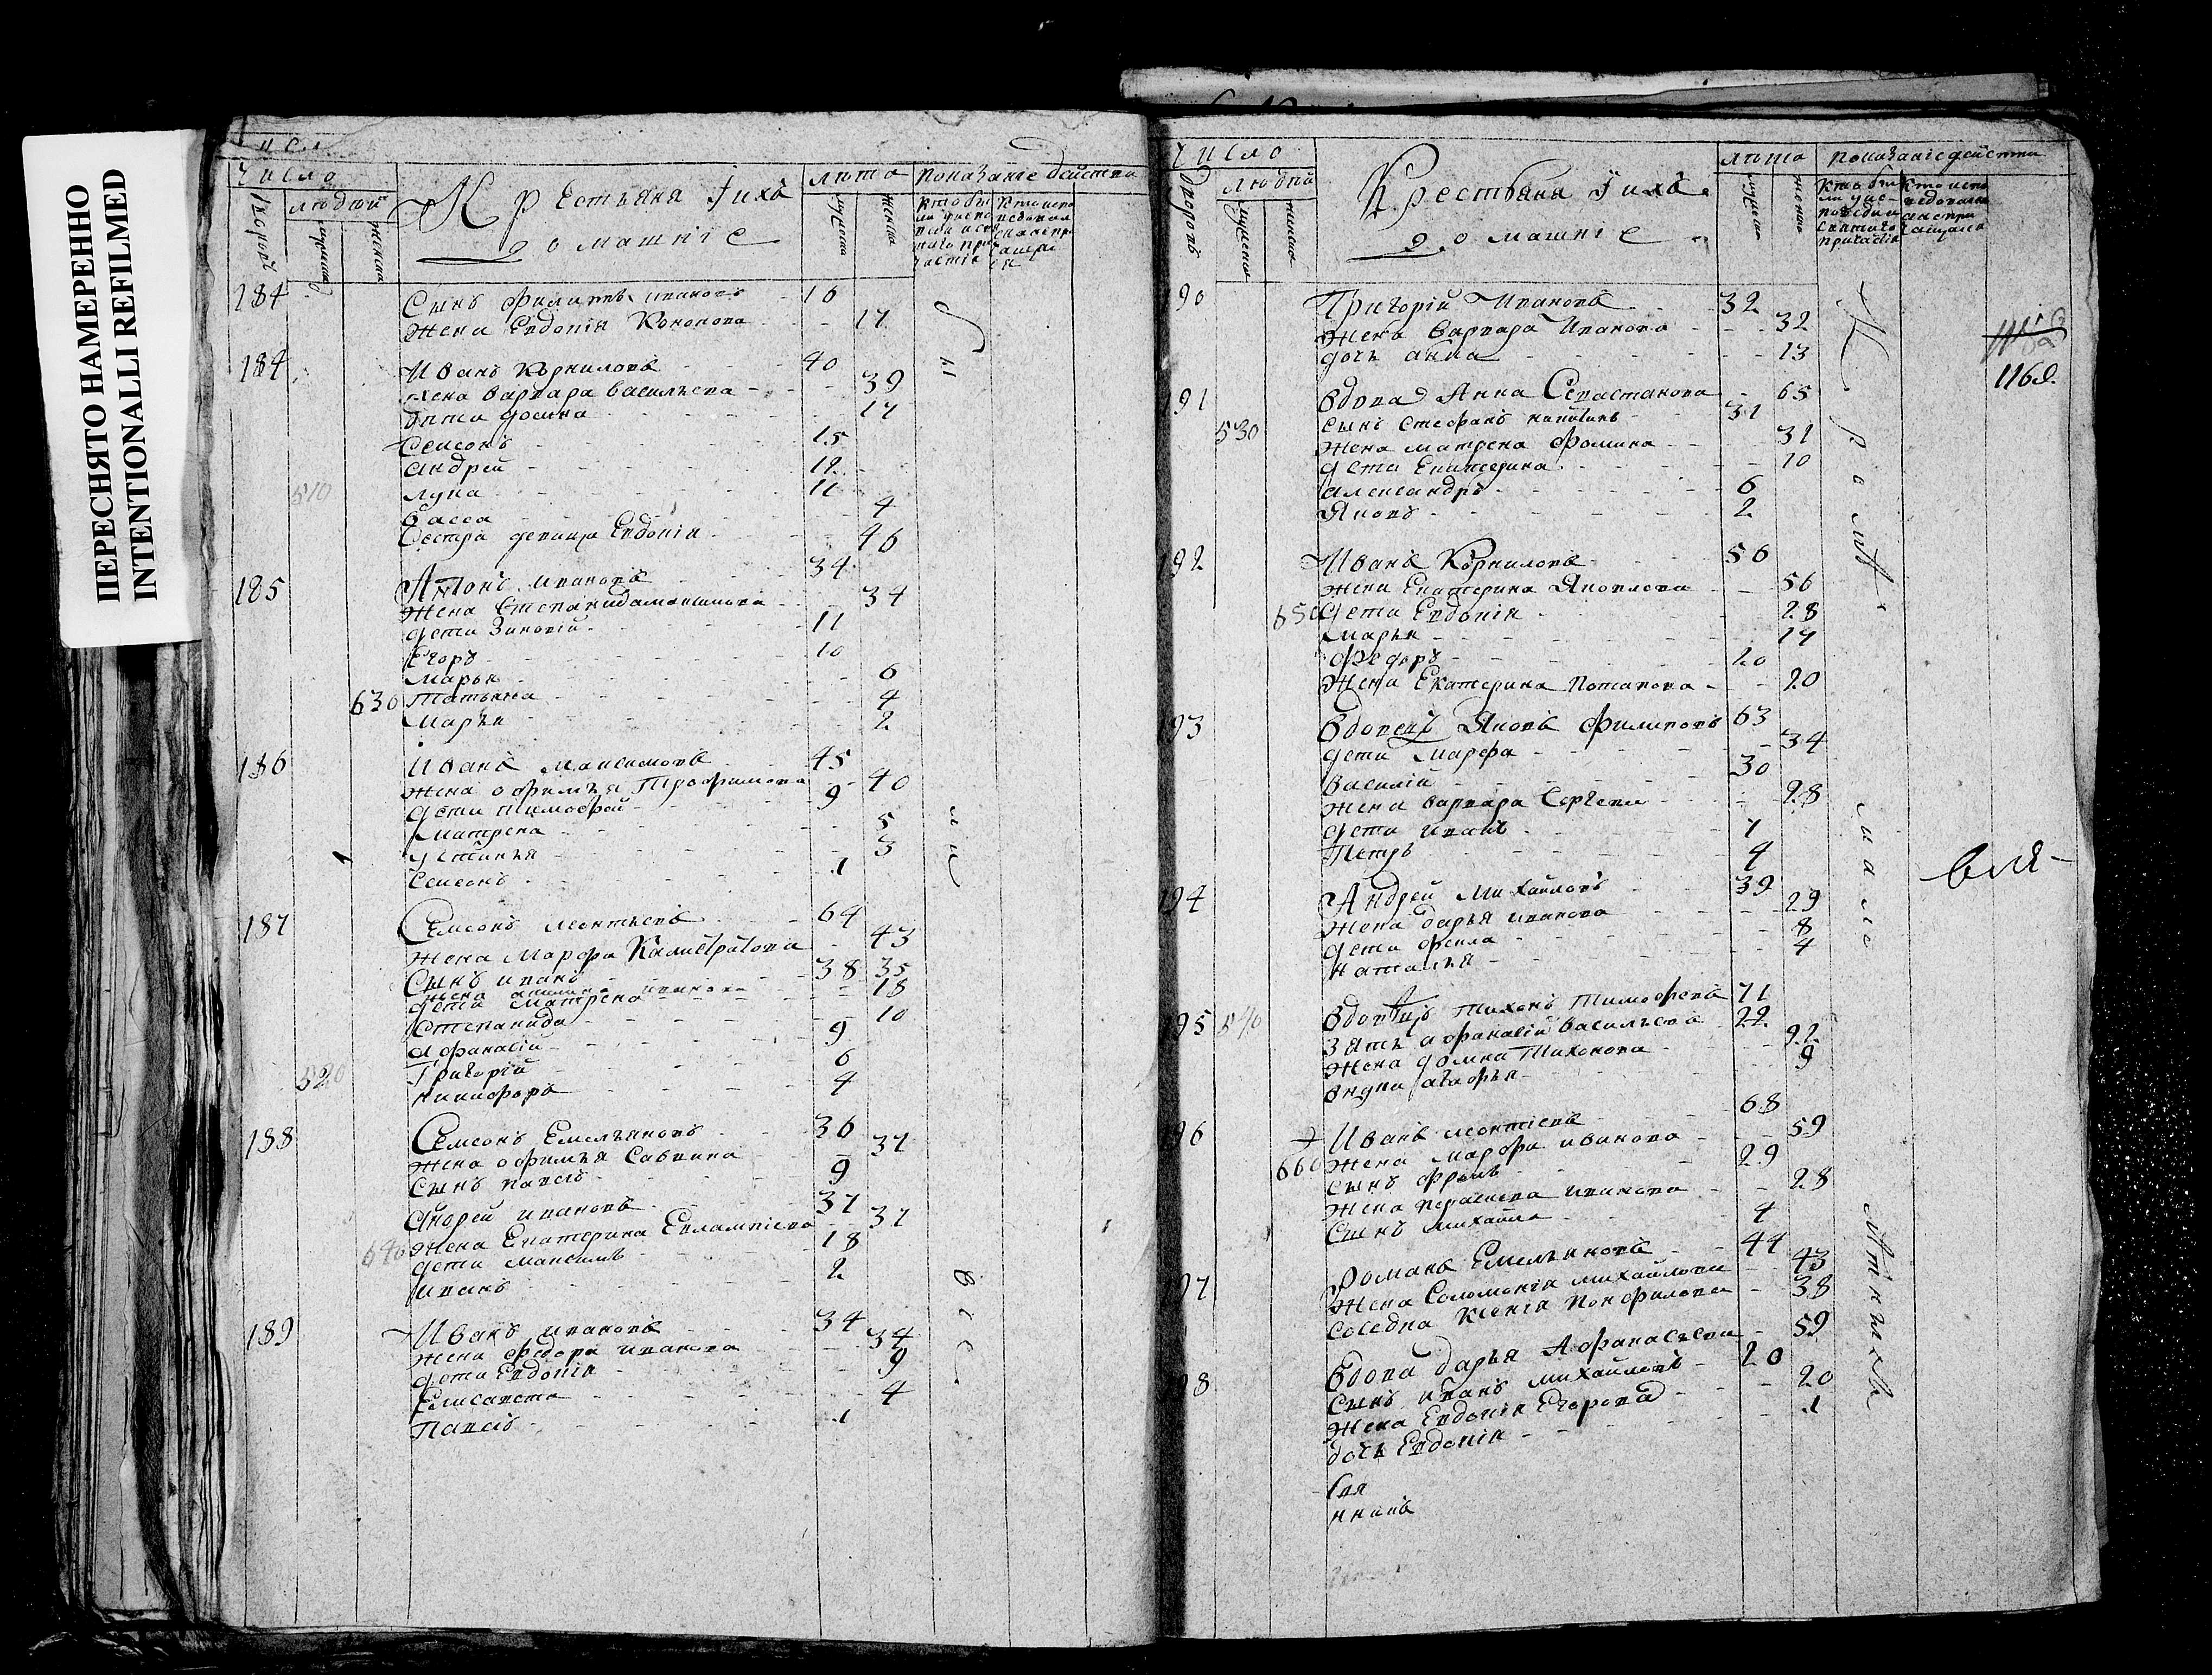 ПЕРЕСНЯТО НАМЕРЕННО
INTENTIONALLI REFILMED
Число
людей
Крестьяня Iихъ
домашнiе
лѣта
Показанiе дѣйства
184 Сынъ Филиппъ Ивановъ 16
Жена Евдокiя Кононова 17
184 Иванъ Корниловъ 40
жена варвара васильева 39
дѣти домна 17
Семсонъ 15
андрей 12
лука 11
510
Васса 4
Сестра девица Евдокiя 46
185 Антонъ ивановъ 34
Жена Степанида максимова 34
дети Зиновiй 11
Егоръ 10
Марья 6
630 Татьяна 4
Марья 2
186 Иванъ Максимовъ 45
Жена офимья Трофимова 40
дети тимофей 9
Матрена 5
устинья 3
Семсонъ 1
187 Семсонъ леонтьевъ 64
Жена Марфа Калистратова 43
Сынъ иванъ 38
жена иванова 35
дети Матрена 18
Степанида 10
Афанасiй 9
Григорiй 6
520 никифоръ 4
188 Семсонъ Емельяновъ 36
Жена офимья Саввина 37
Сынъ павелъ 9
Андрей ивановъ 37
640 Жена Екатерина Евлампiева 37
дети максимъ 18
иванъ 2
189 Иванъ ивановъ 34
Жена федора иванова 34
дети Евдокiя 9
Елисавета 4
Павелъ 1
Число
людей
Крестьяня Iихъ
домашнiе
лѣта
Показанiе дѣйства
90 Григорiй Ивановъ 32
Жена варвара Иванова 32
дочь анна 13
1168
91 Вдова Анна Севастанова 65
530 Сынъ Стефанъ никитинъ 31
Жена матрена фомина 31
дети Екатерина 10
александръ 6
Яковъ 2
192 Иванъ Корниловъ 56
Жена Екатерина Яковлева 56
650 дети Евдокiя 28
Марья 17
Федоръ 20
Жена Екатерина Потапова 20
93 Вдовецъ Яковъ Филиповъ 63
дети Марфа 34
Василiй 30
Жена варвара Сергеева 28
дети иванъ 7
Петръ 4
194 Андрей Михайловъ 39
Жена дарья иванова 29
дети фекла 8
наталья 4
195 540 Вдовецъ Тихонъ Тимофеевъ 71
Зять афанасiй васильевъ 22
Жена домна Тихонова 22
внука агафья 9
96 Иванъ леонтiевъ 68
660 Жена Марфа иванова 59
Сынъ фролъ 29
Жена Парасковa иванова 28
Сынъ михайла 4
97 Романъ Емельяновъ 44
Жена Соломонiя михайлова 43
Соседка Ксенiя Понфилова 38
98 Вдова дарья Афанасьева 59
Сынъ иванъ михайловъ 20
Жена Евдокiя Егорова 20
дочь Евдокiя 1